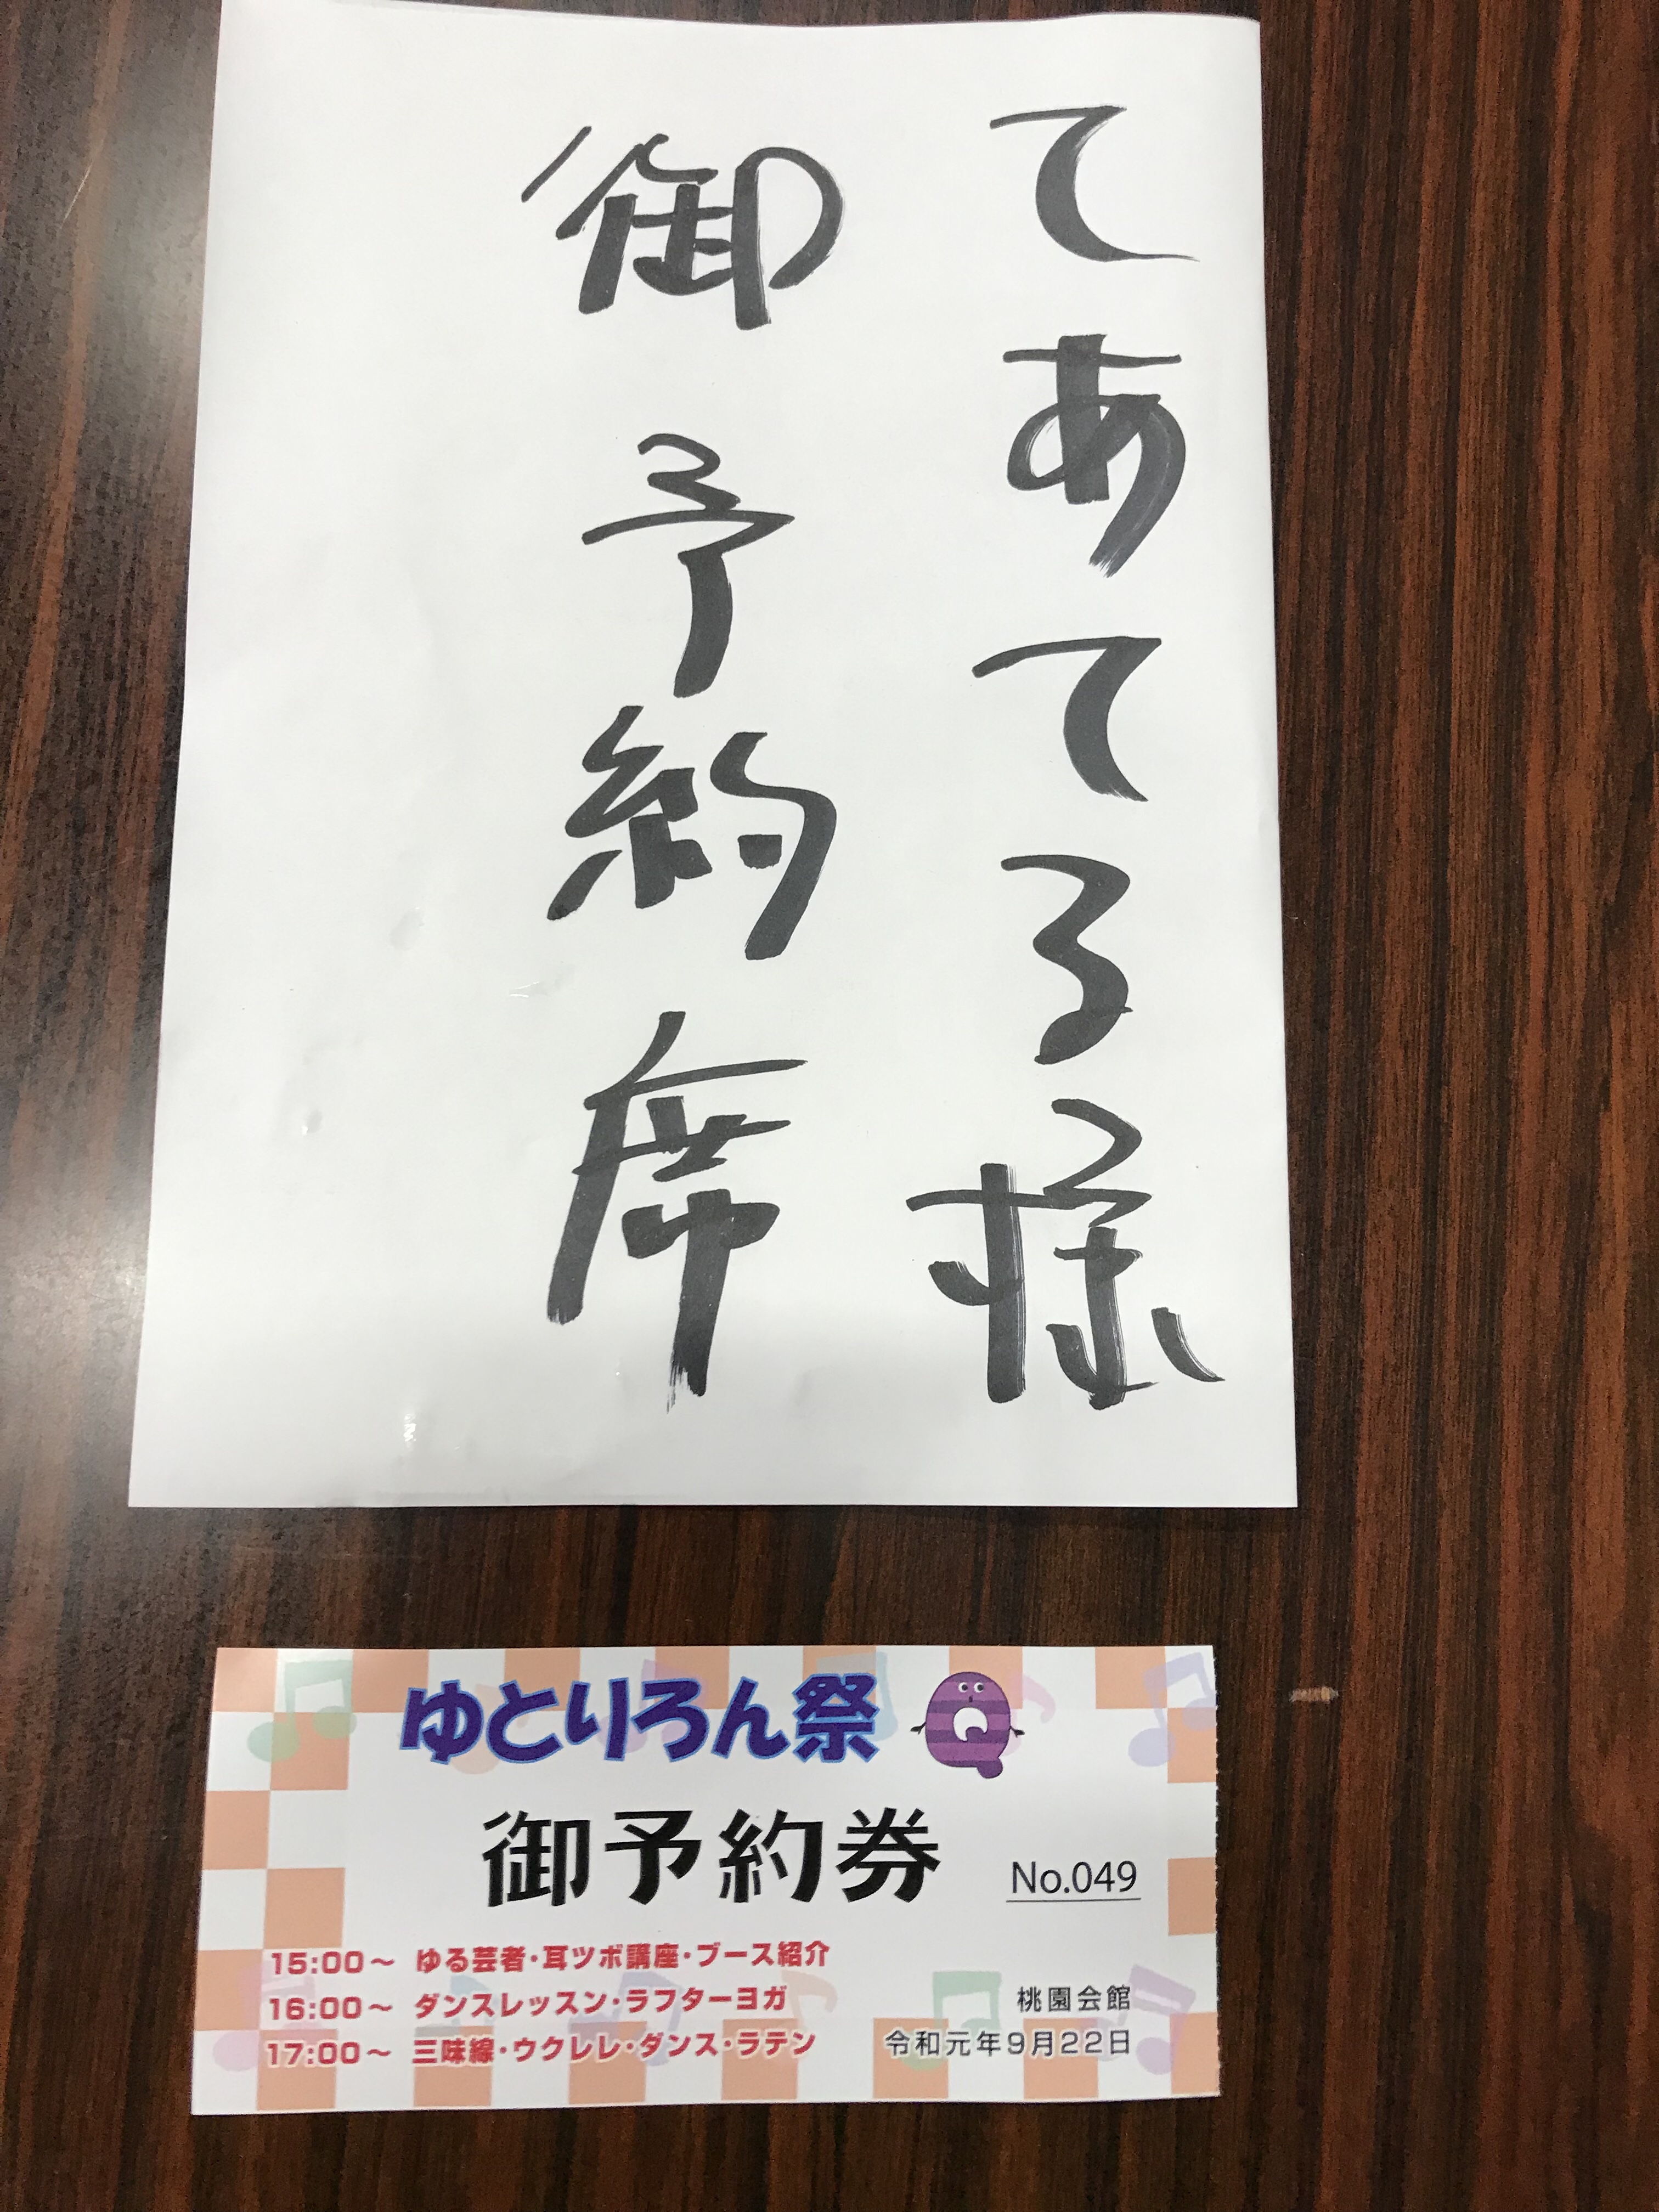 てあてる様
御予約席
ゆとりろん祭
Q
御予約券
No.049
15:00～ ゆる芸者・耳ツボ講座・ブース紹介
16:00～ ダンスレッスン・ラフターヨガ
17:00～ 三味線・ウクレレ・ダンス・ラテン
桃園会館
令和元年9月22日